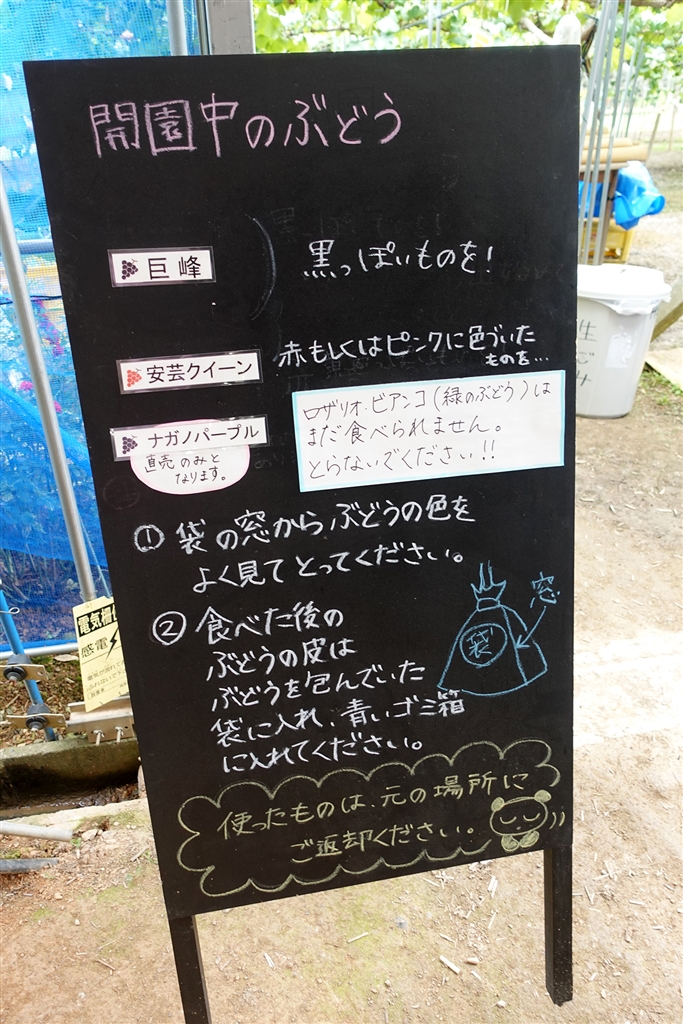 開園中のぶどう
巨峰
黒っぽいものを!
安芸クイーン
赤もしくはピンクに色づいた
ものを…
ナガノパープル
直売のみと
なります。
ロザリオ・ビアンコ(緑のぶどう)は
まだ食べられません。
とらないでください!!
① 袋の窓からぶどうの色を
よく見てとってください。
② 食べた後の
ぶどうの皮は
ぶどうを包んでいた
袋に入れ、青いゴミ箱
に入れてください。
窓
袋
使ったものは、元の場所に
ご返却ください。
生ごみ
電気柵
感電